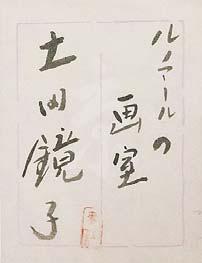 ルノアールの
画室
土田鏡子